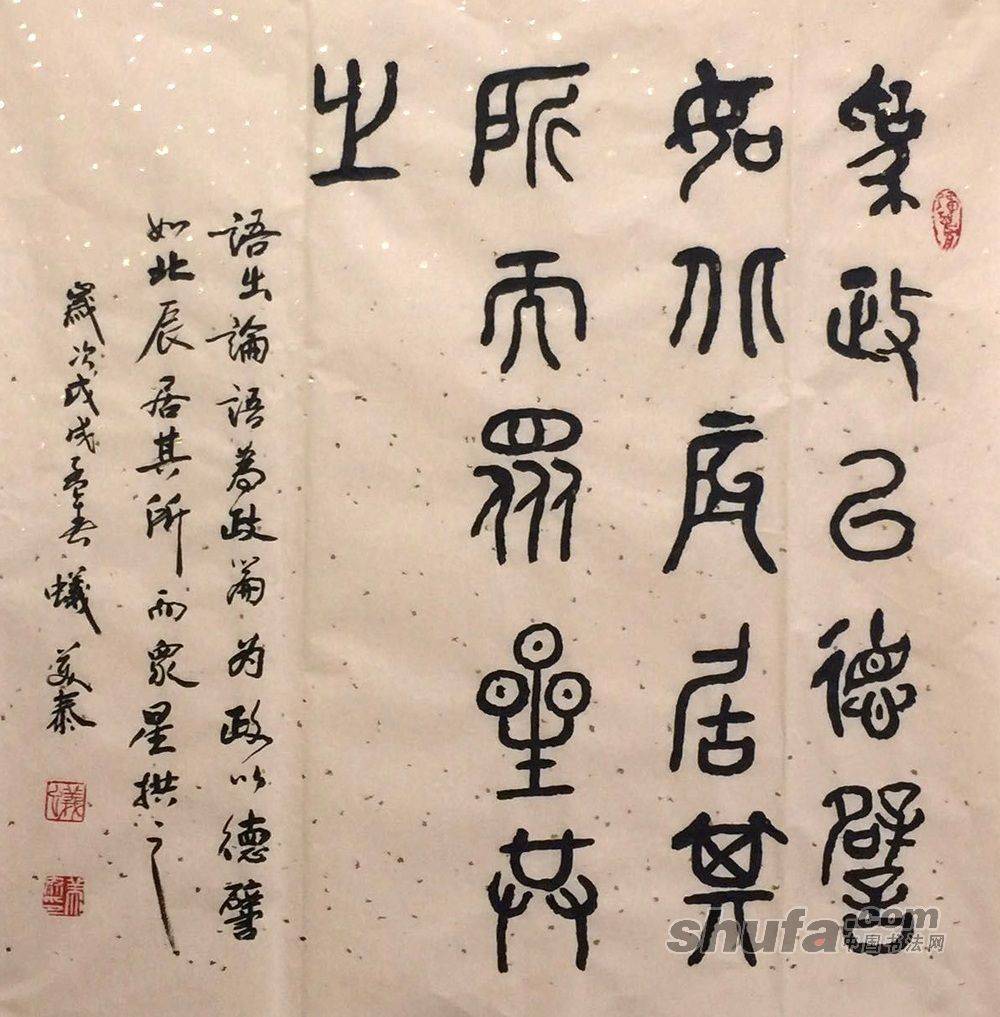 為政以德譬
如北辰居其
所而眾星共
之
語出論語為政篇为政以德譬
如北辰居其所而眾星拱之
歲次戊戌孟春 蟻美泰
shufa.com
中国书法网